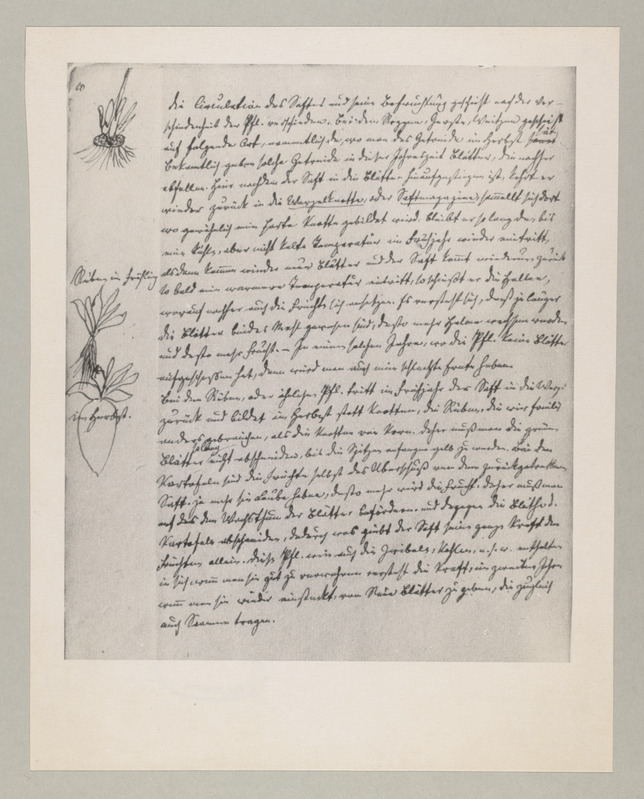 die Circulation des Saftes und seine Befruchtung geschieht nach der Ver-
schiedenheit der Pfl. verschieden. bei dem Roggen, Gerste, Weitzen geschieht
auf folgende Art, nemmtlich die, wo man das Getreide im Herbst
Bekantlich geben solche Getreide in dieser Jahreszeit Blätter, die nachher
abfallen. hier nachdem der Saft in die Blätter hinaufgestiegen ist, kehrt er
wieder zurück in die Wurzelknotte, oder Saftmagazine, sammelt sich dort
wo gewöhnlich eine harte Knotte gebildet wird. bleibt er so lange da, bis
eine kühle, aber nicht kalte Temperatur im Frühjahr wieder eintritt,
alsdann kommen wieder neue Blätter und der Saft kommt wiederum zurück
so bald eine warmere Temperatur eintritt, so schießt er die Halme,
worauf nachher auch die Früchte sich ansetzen. Es versteht sich, daß je länger
die Blätter gewesen sind, desto mehr Halme wachsen werden
und desto mehr Frucht. – In einem solchen Jahre, wo die Pfl. keine Blätter
aufgeschossen hat, denn wird man auch eine schlechte Ernte haben.
Rüben im Frühling
bei den Rüben, oder ähnlichen Pfl. tritt im Frühjahr der Saft in die Wurzel
zurück und bildet im Herbst statt Knotten, die Rüben, die wir
im Herbst.
anders gebrauchen, als die Knotten von Korn. daher muß man die grünen
Blätter nicht abschneiden, bis die Spitzen anfangen gelb zu werden. bei den
Kartofeln sind die Früchte selbst der Überschuß von dem zurückgetretenen
Saft. je mehr sie Laube haben, desto mehr wird die Frucht. daher muß man
auch das den Wachsthum der Blätter befördern und dagegen die Blüthe d.
Kartofeln abschneiden, dadurch giebt der Saft seine ganze Kraft den
Früchten allein. diese Pfl. wie auch die Zwibeln, Kohlen, u.s.w. enthalten
in sich wenn man sie gut zu verwahren versteht die Kraft, im zweiten Jahre
wenn man sie wieder einsteckt, von Neue Blätter zu geben, die zugleich
auch Saamen tragen.